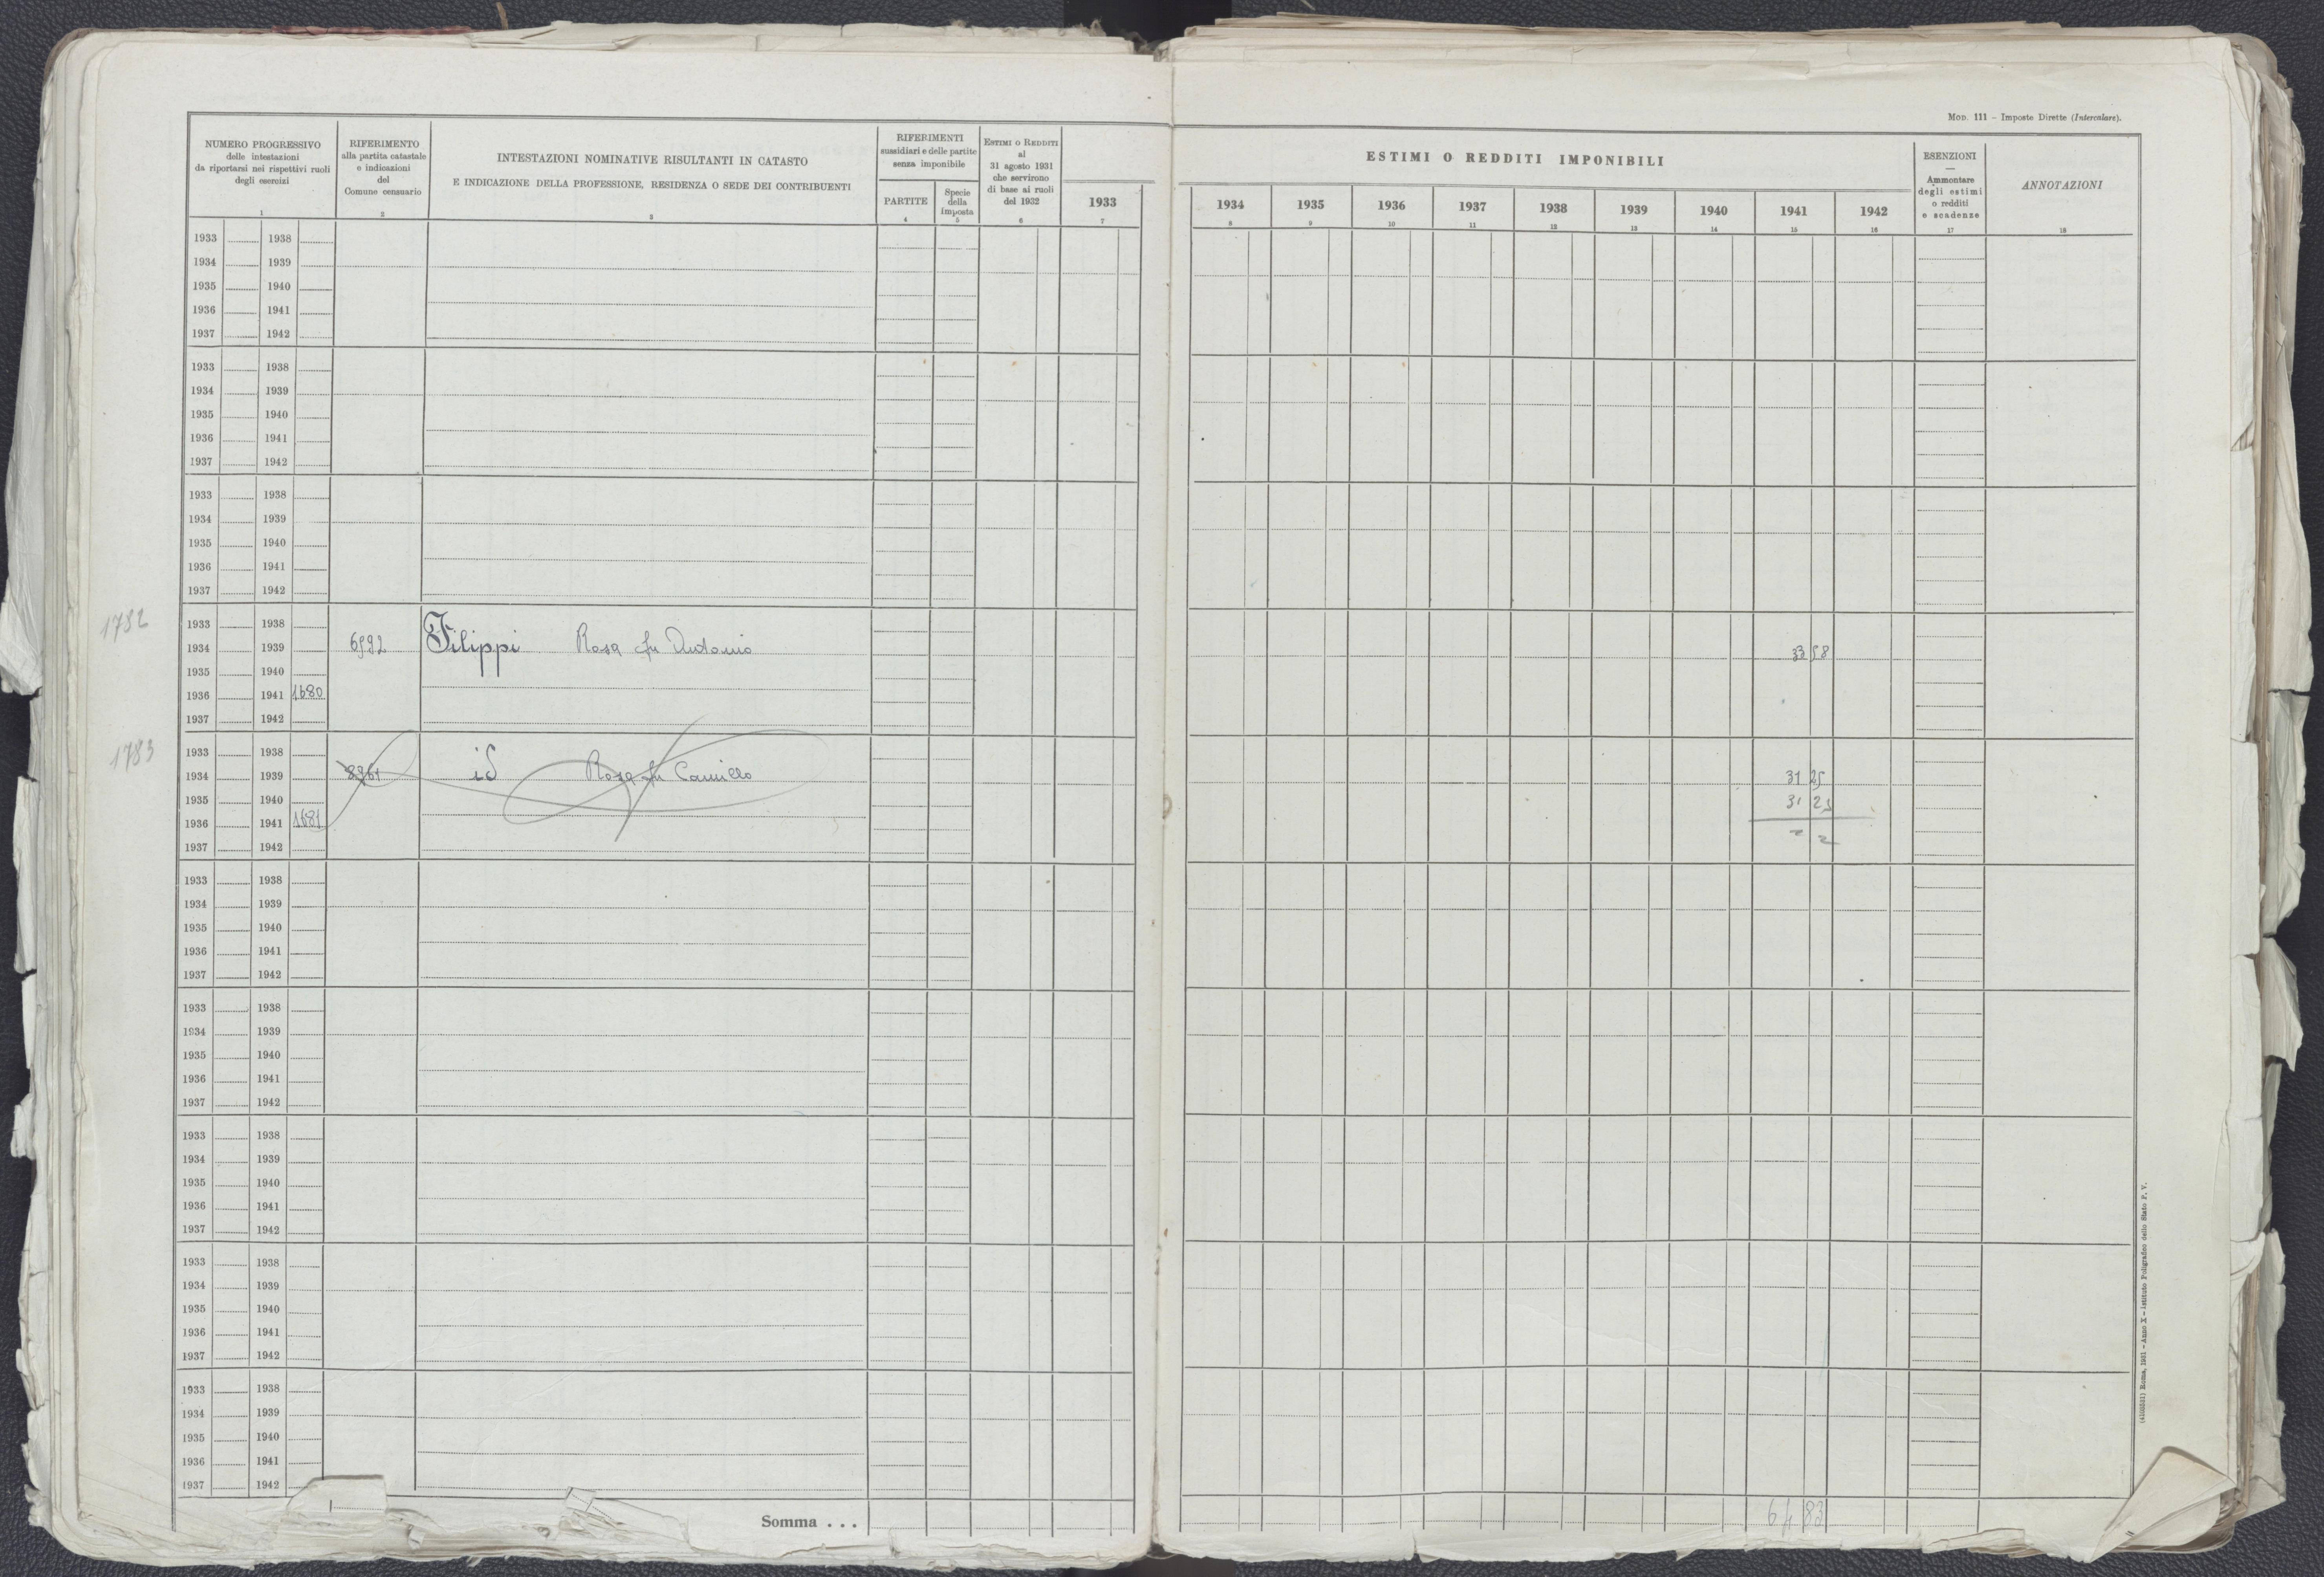 MOD. 111 – Imposte Dirette (Intercalare).
NUMERO PROGRESSIVO
delle intestazioni
da riportarsi nei rispettivi ruoli
degli esercizi
1
RIFERIMENTO
alla partita catastale
e indicazioni
del
Comune censuario
2
INTESTAZIONI NOMINATIVE RISULTANTI IN CATASTO
E INDICAZIONE DELLA PROFESSIONE, RESIDENZA O SEDE DEI CONTRIBUENTI
3
RIFERIMENTI
sussidiari e delle partite
senza imponibile
PARTITE
4
Specie
della
imposta
5
ESTIMI O REDDITI
al
31 agosto 1931
che servirono
di base ai ruoli
del 1932
6
1933
7
ESTIMI O REDDITI IMPONIBILI
1934 1935 1936 1937 1938 1939 1940 1941 1942
8 9 10 11 12 13 14 15 16
ESENZIONI
—
Ammontare
degli estimi
o redditi
e scadenze
17
ANNOTAZIONI
18
1933 1938
1934 1939
1935 1940
1936 1941
1937 1942
1933 1938
1934 1939
1935 1940
1936 1941
1937 1942
1933 1938
1934 1939
1935 1940
1936 1941
1937 1942
1782
1933 1938
1934 1939 6592 Filippi Rosa fu Antonio 33 58
1935 1940
1936 1941 1680
1937 1942
1783
1933 1938
1934 1939 8361 id Rosa fu Camillo 31 25
1935 1940 31 25
1936 1941 1681
1937 1942
1933 1938
1934 1939
1935 1940
1936 1941
1937 1942
1933 1938
1934 1939
1935 1940
1936 1941
1937 1942
1933 1938
1934 1939
1935 1940
1936 1941
1937 1942
1933 1938
1934 1939
1935 1940
1936 1941
1937 1942
1933 1938
1934 1939
1935 1940
1936 1941
1937 1942
Somma . . . 64 83
Roma, 1931 – Anno X – Istituto Poligrafico dello Stato P. V.